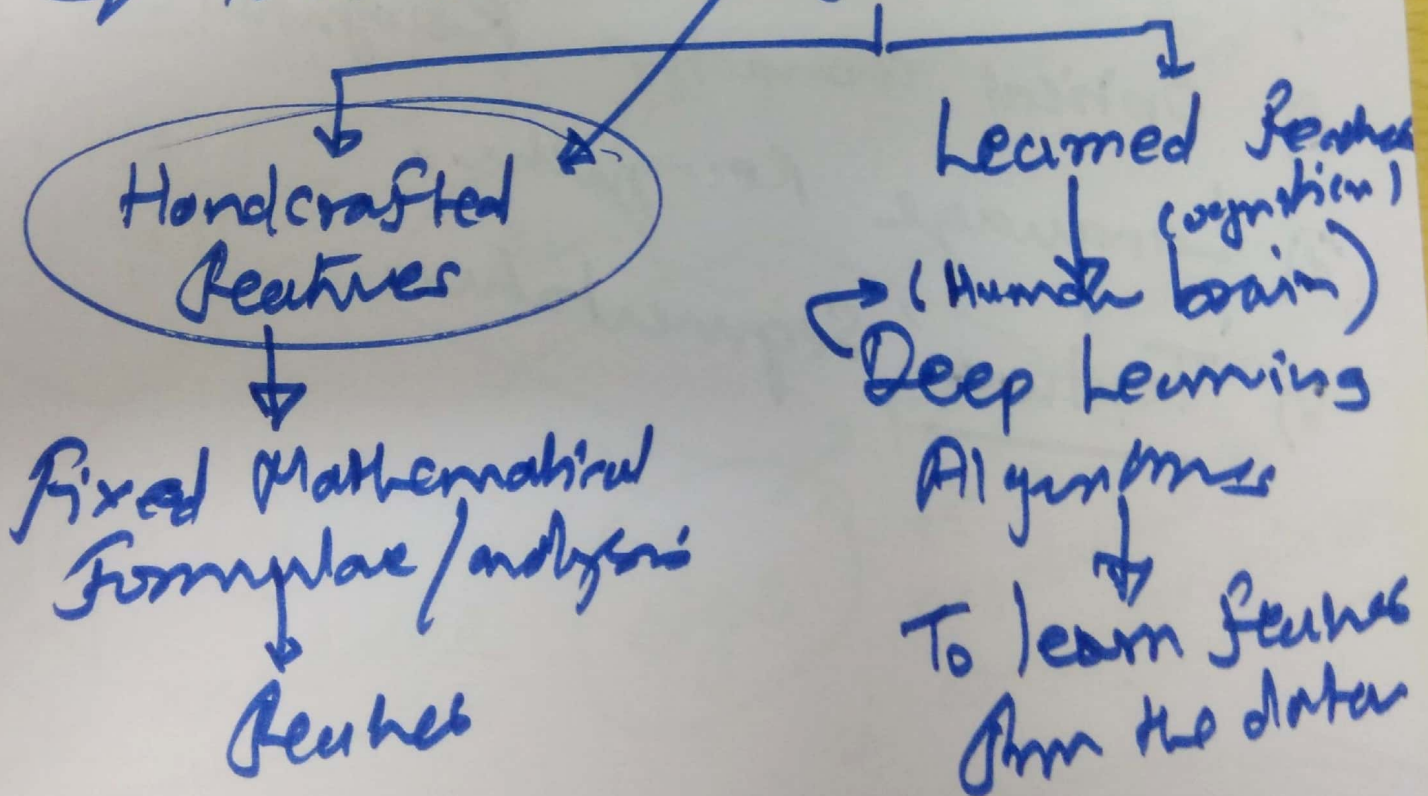 Handcrafted
features
Fixed Mathematical
Formulae / analysis
features
Learned features
(cognition)
(Human brain)
Deep Learning
Algorithms
To learn features
from the data